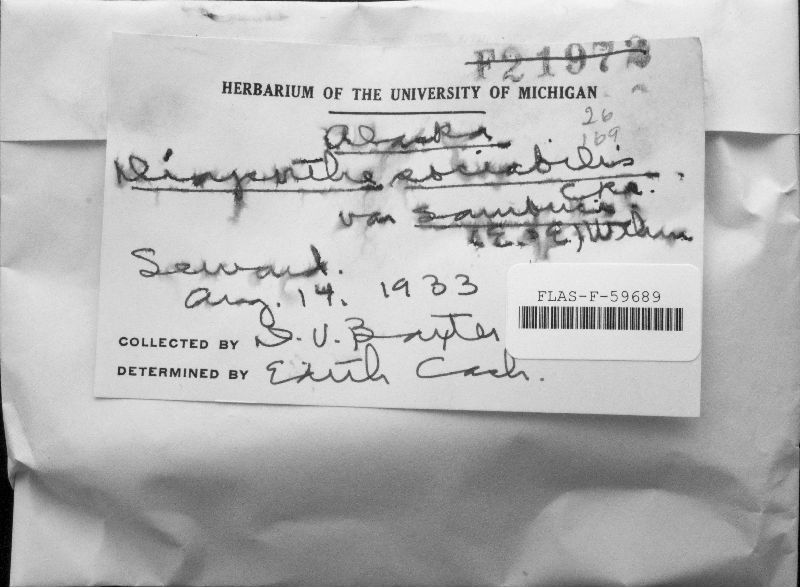 F21972
HERBARIUM OF THE UNIVERSITY OF MICHIGAN
26
169
Alaska
sociabilis
Cke.
var sambuci
(E. & E.) Wehm
Seward.
Aug. 14. 1933
FLAS-F-59689
COLLECTED BY D. V. Baxter
DETERMINED BY Edith Cash.